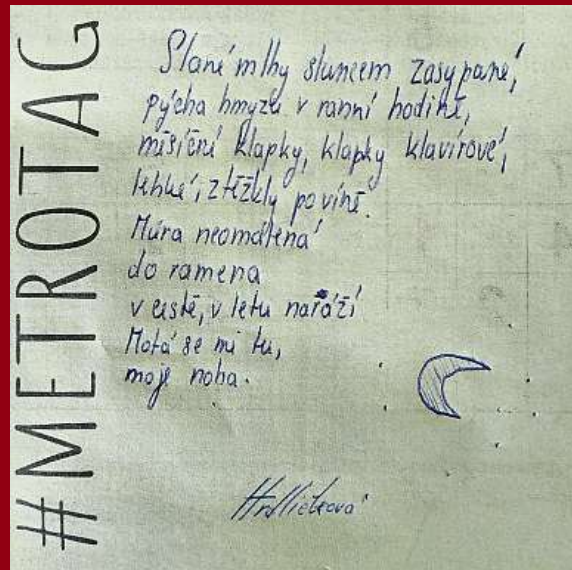 #METROTAG
Slané mlhy sluncem zasypané,
pýcha hmyzu v ranní hodině,
měsíční klapky, klapky klavírové,
lehké, ztěžkly po víně.
Můra neomalená
do ramena
v cestě, v letu naráží
Motá se mi tu,
moje noha.